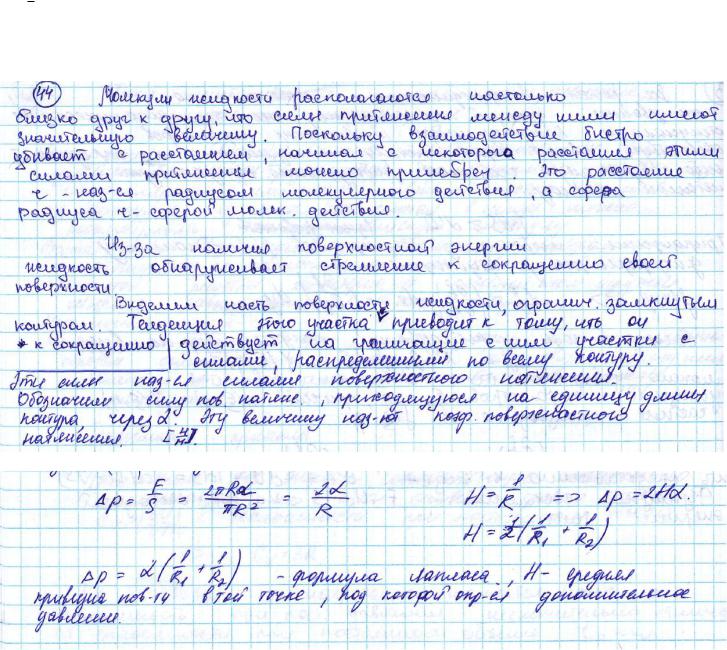 44 Молекулы жидкости располагаются настолько
близко друг к другу, что силы притяжения между ними имеют
значительную величину. Поскольку взаимодействие быстро
убывает с расстоянием, начиная с некоторого расстояния этими
силами притяжения можно пренебреч. Это расстояние
r - наз-ся радиусом молекулярного действия, а сфера
радиуса r - сферой молек. действия.
Из-за наличия поверхностной энергии
жидкость обнаруживает стремление к сокращению своей
поверхности.
Выделим часть поверхности жидкости, огранич. замкнутым
контуром. Тенденция этого участка приводит к тому, что он
* к сокращению действует на граничащие с ним участки с
силами, распределенными по всему контуру.
Эти силы наз-ся силами поверхностного натяжения.
Обозначим силу пов. натяже, приходящуюся на единицу длины
контура, через α. Эту величину наз-ют коэф. поверхностного
натяжения. [Н/м].
Δp = F/S = 2πRα/πR² = 2α/R H = 1/R => Δp = 2Hα.
H = 1/2 (1/R₁ + 1/R₂)
Δp = α (1/R₁ + 1/R₂) - формула Лапласа, H - средняя
кривизна пов-ти в той точке, под которой опр-ся дополнительное
давление.